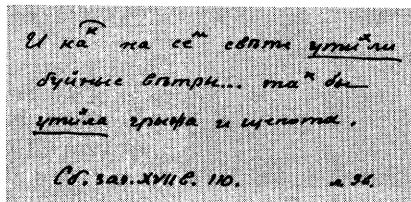 И каᵏ на сеᵐ свѣтѣ утиˣли
буйные вѣтры... таᵏ бы
утиˣла грыжа и щепота.
Сб. заг. XVII в. 110. л. 96.